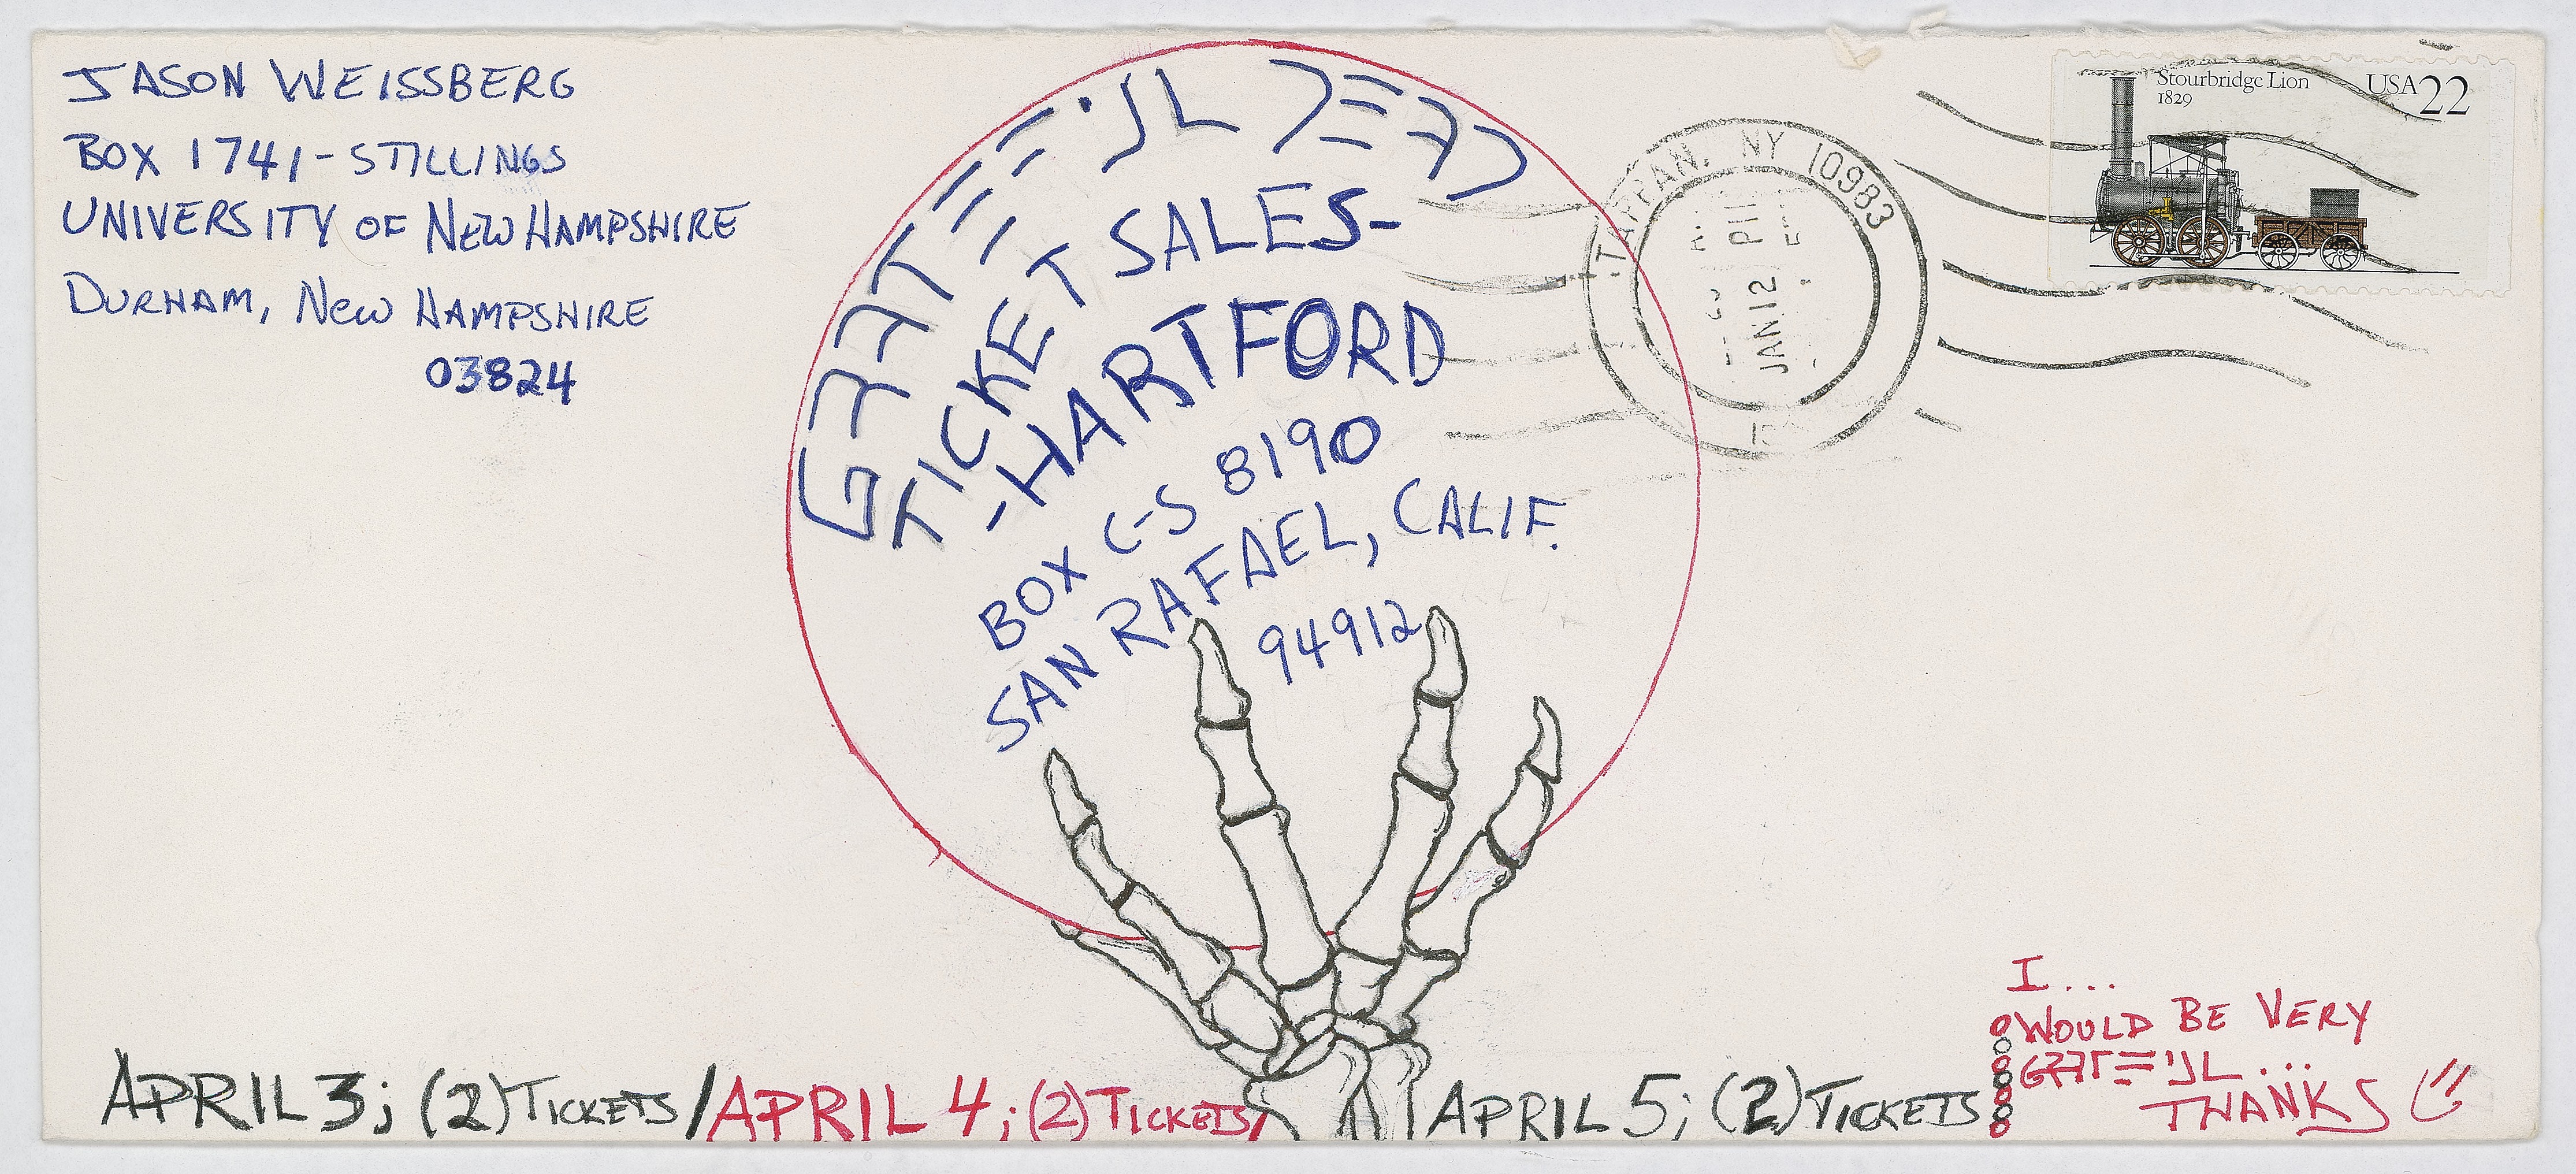 JASON WEISSBERG
BOX 1741-STILLINGS
UNIVERSITY OF NEW HAMPSHIRE
DURHAM, NEW HAMPSHIRE
03824
GRATEFUL DEAD
TICKET SALES-
-HARTFORD
BOX C-S 8190
SAN RAFAEL, CALIF.
94912
TAPPAN, NY 10983
PM
JAN 12
Stourbridge Lion
1829
USA 22
APRIL 3; (2) TICKETS / APRIL 4; (2) TICKETS / APRIL 5; (2) TICKETS
I...
WOULD BE VERY
GRATEFUL...
THANKS